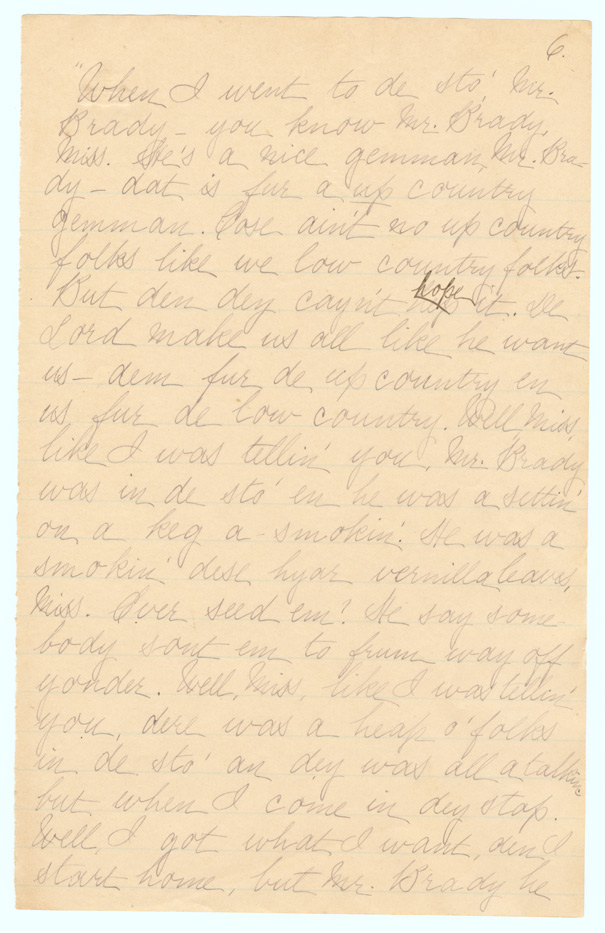 6.
"When I went to de sto', Mr.
Brady – you know Mr. Brady,
Miss. He's a nice gemman, Mr. Bra-
dy – dat is fur a up country
gemman. Cose ain't no up country
folks like we low country folks.
But den dey cayn't hope it. De
Lord make us all like he want
us – dem fur de up country en
us fur de low country. Well Miss,
like I was tellin' you, Mr. Brady
was in de sto' en he was a settin'
on a keg a-smokin'. He was a
smokin' dese hyar vernilla leaves,
Miss. Ever seed em? He say some
body sont em to frum way off
yonder. Well, Miss, like I was tellin'
you, dere was a heap o' folks
in de sto' an dey was all a talkin
but when I come in dey stop.
Well, I got what I want, den I
start home, but Mr. Brady he